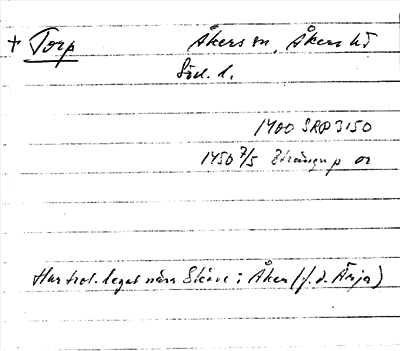 + Torp Åkers sn, Åkers hd
Söd. l.
1400 SRP 3150
1450 7/5 or
Har trol. legat nära Skäve i Åker (f. d. Ärja)